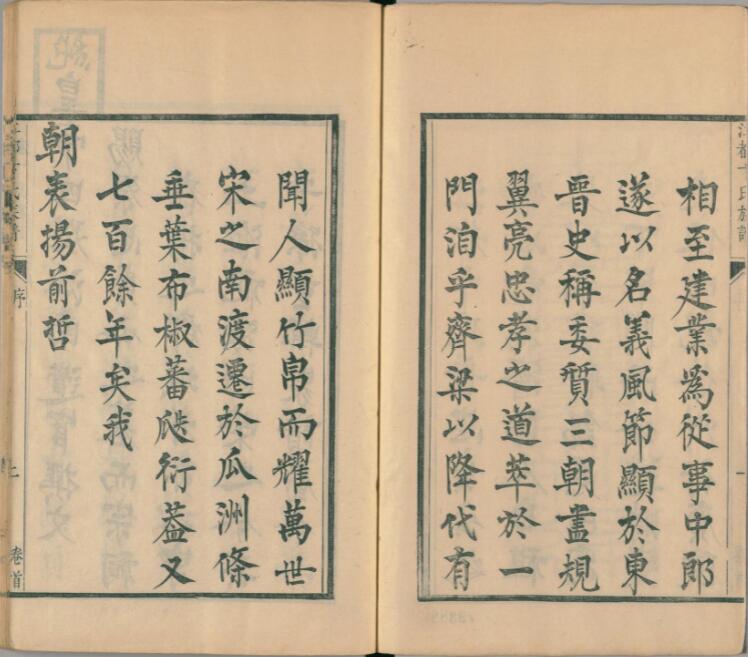 相至建業為從事中郎
遂以名義風節顯於東
晉史稱委質三朝盡規
翼亮忠孝之道萃於一
門洎乎齊梁以降代有
聞人顯竹帛而耀萬世
宋之南渡遷於瓜洲條
垂葉布椒蕃瓞衍葢又
七百餘年矣我
朝表揚前哲
序
上
卷首